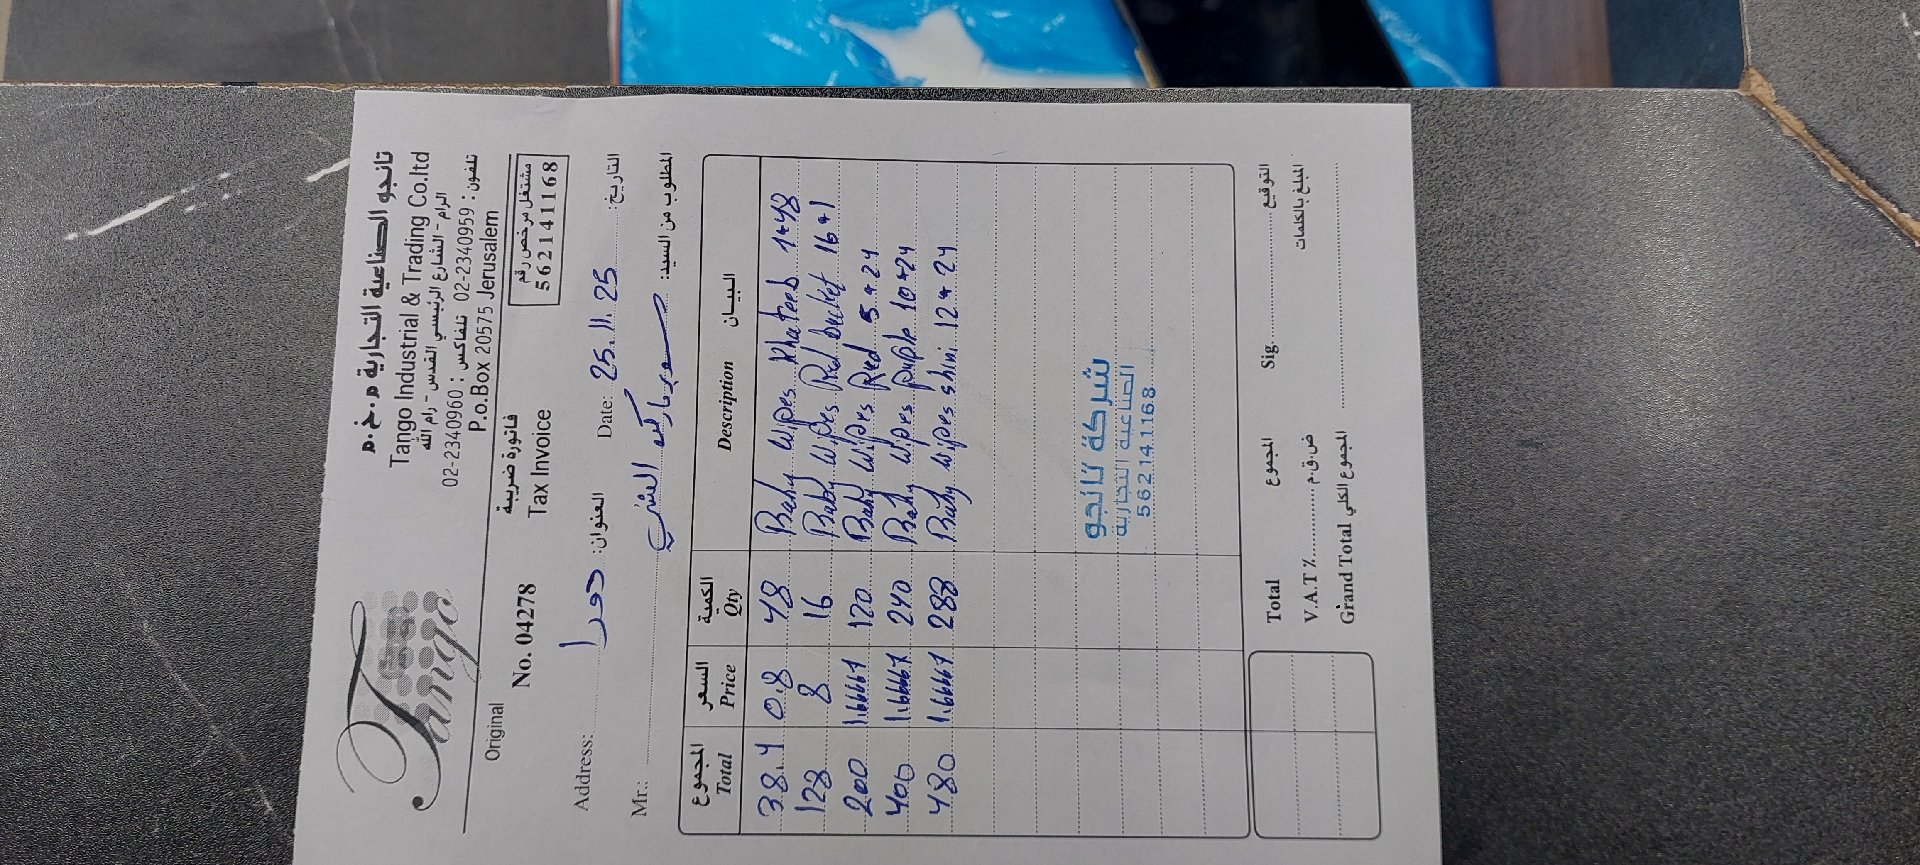 Tango
تانجو الصناعية التجارية م.خ.م
Tango Industrial & Trading Co.ltd
الرام - الشارع الرئيسي القدس - رام الله
تلفون : 02-2340959 تلفاكس : 02-2340960
P.o.Box 20575 Jerusalem
Original
فاتورة ضريبة
Tax Invoice
No. 04278
مشتغل مرخص رقم
562141168
Address: دورا العنوان: Date: 25.11.25 التاريخ:
Mr.: سوبر ماركت المطلوب من السيد:
المجموع السعر الكمية البيـان
Total Price Qty Description
38.4 0.8 48 Baby wipes khateeb 1*48
128 8 16 Baby wipes Red bucket 16*1
200 1.66667 120 Baby wipes Red 5*24
400 1.66667 240 Baby wipes purple 10*24
480 1.66667 288 Baby wipes shini 12*24
شركة تانجو
الصناعية التجارية
562141168
Total المجموع Sig. التوقيع
V.A.T % ض.ق.م المبلغ بالكلمات
Grand Total المجموع الكلي